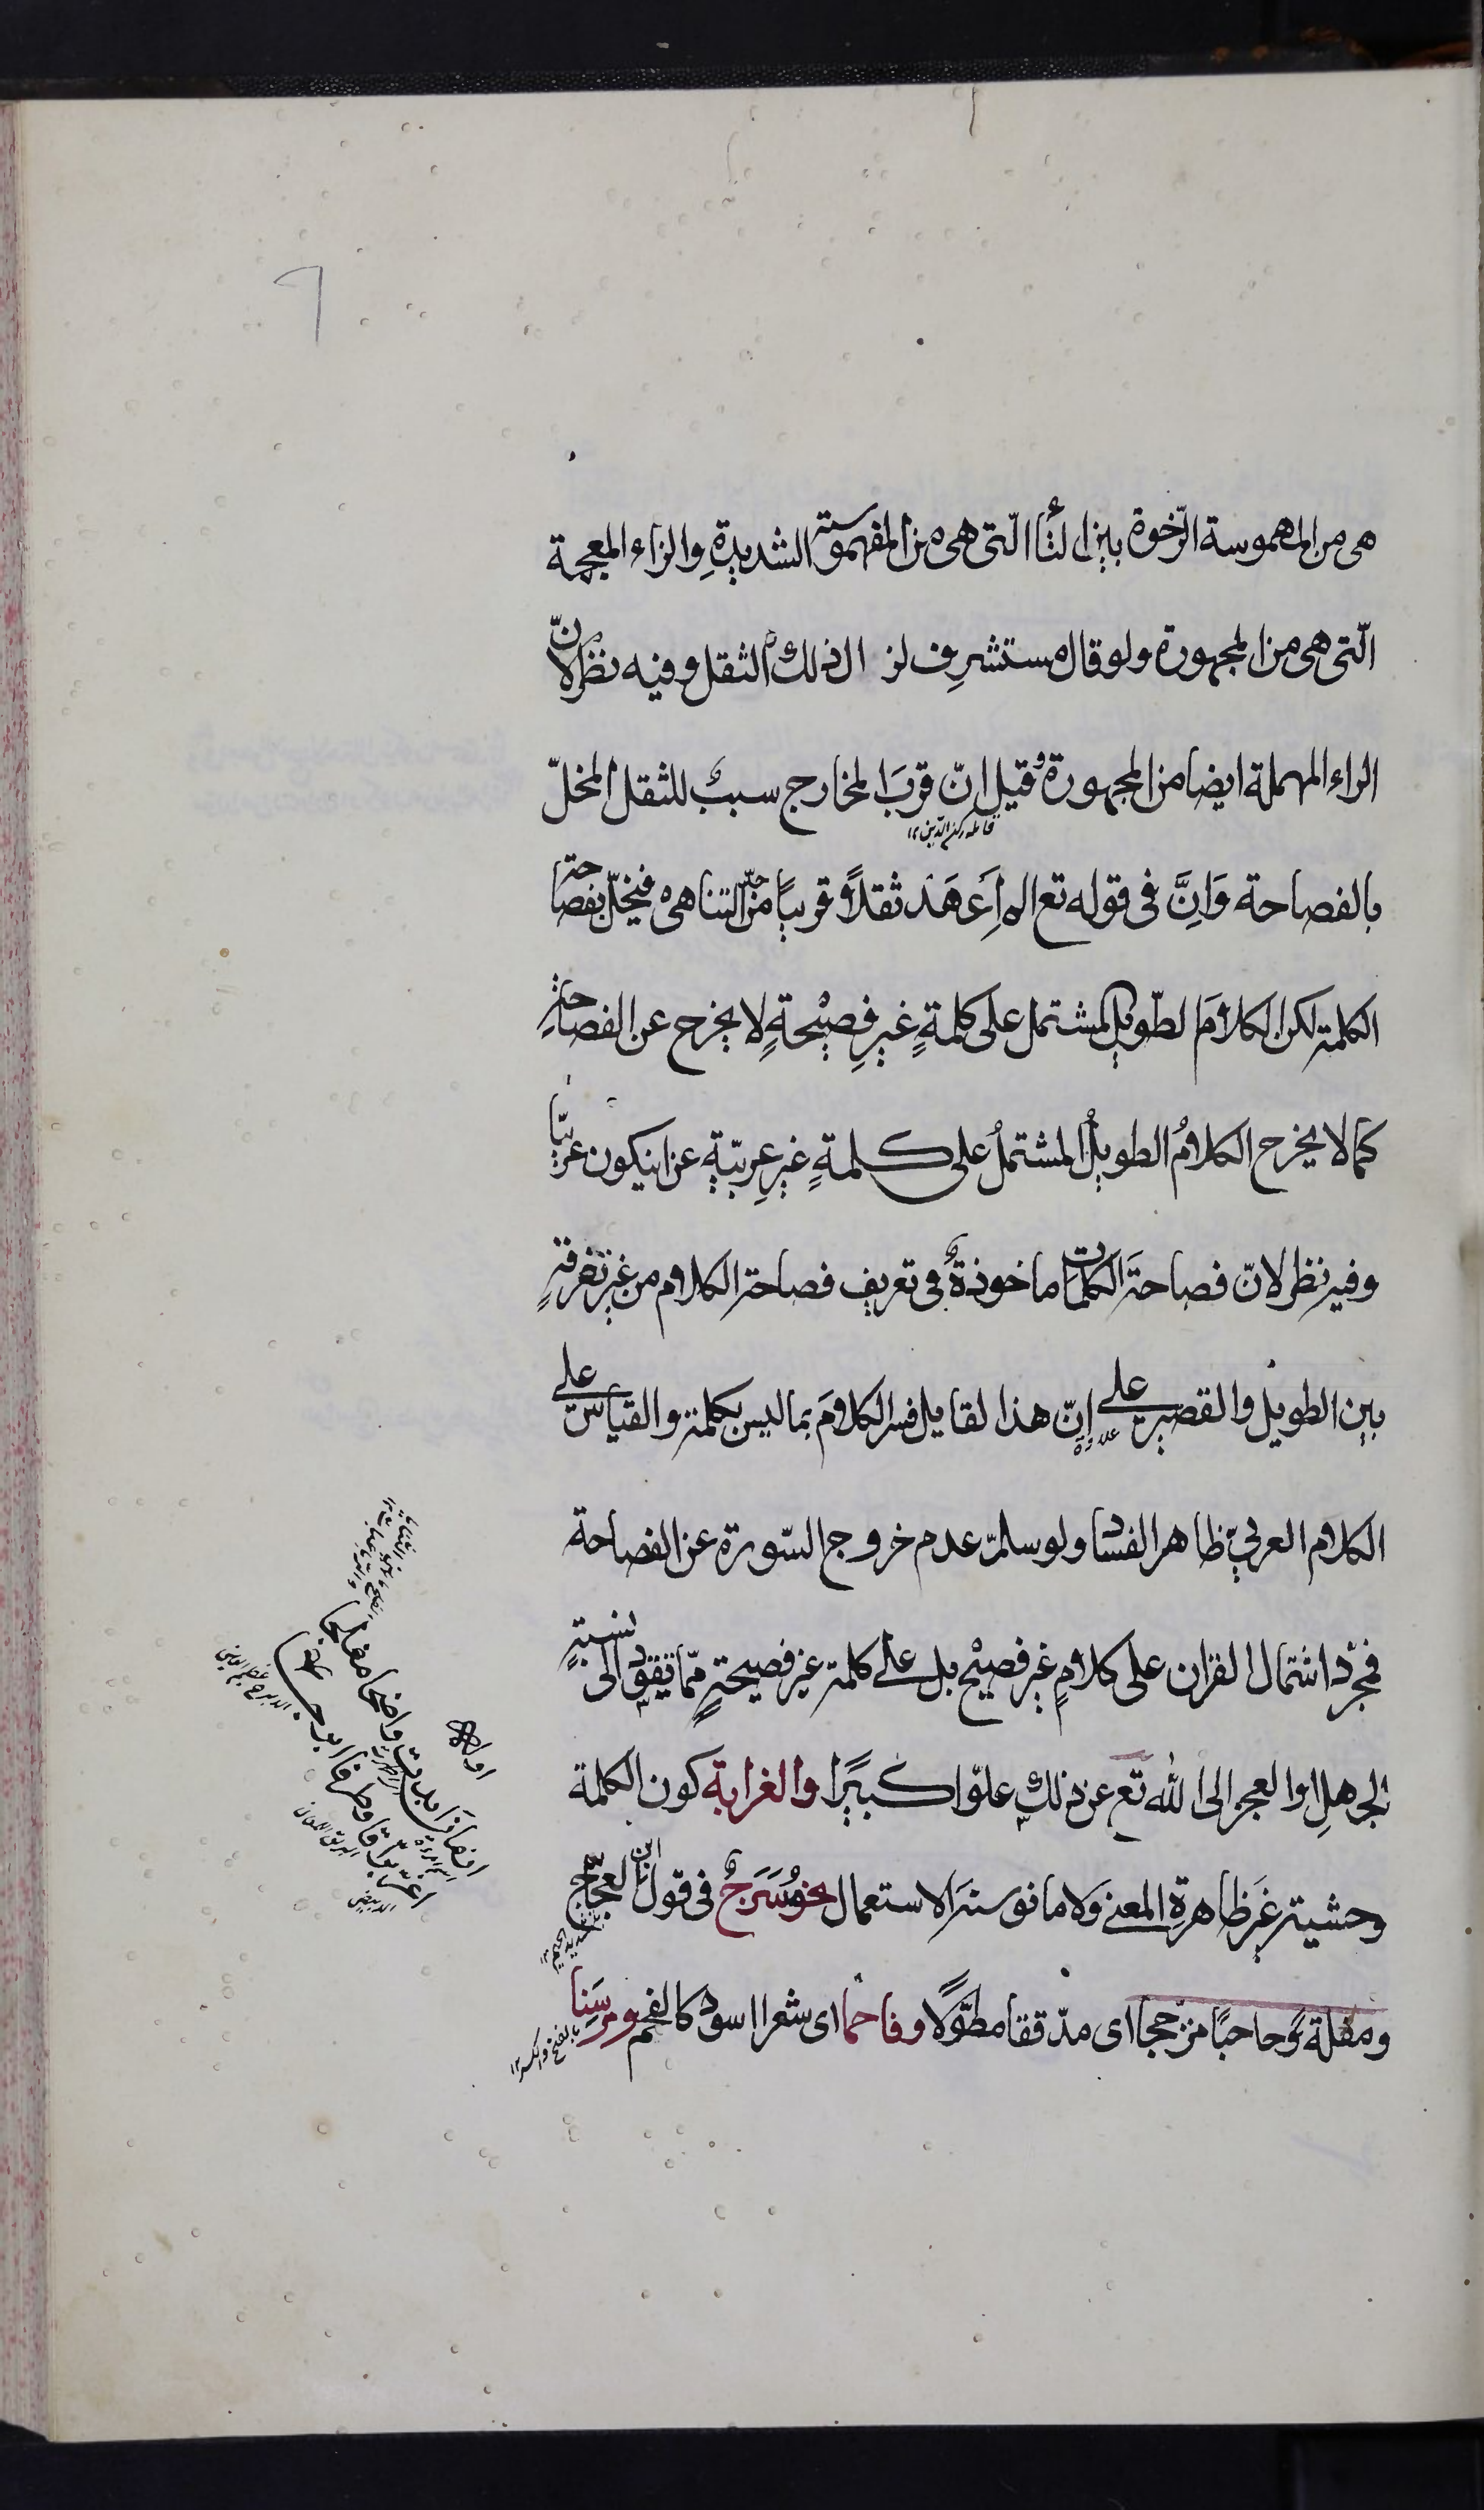 هى من المهموسة الرّخوة بين التّا الّتى هى من المهموسة الشديدةِ والزاء المعجمة
الّتى هى من المجهورة ولو قال مستشرف لزال ذلك الثقل وفيه نظر لانّ
الراء المهملة ايضا من المجهورة وقيل انّ قربَ المخارج سببٌ للثقل المخلّ
قائله ركن الدّين ١٢
بالفصاحة وَانَّ فى قوله تع الم اَعهَد ثقلاً قريبًا من حدّ التناهى فيخلّ بفصاحة
الكلمة لكن الكلامَ الطّويل المشتمل على كلمةٍ غيرِ فصيْحةٍ لا يخرج عن الفصاحةِ
كما لا يخرج الكلامُ الطويلُ المشتملُ على كلمةٍ غيرِ عربيّةٍ عن ان يكون عربيًّا
وفيه نظر لانّ فصاحةَ الكلمات ماخوذةٌ فى تعريف فصاحة الكلام من غير تفرقةٍ
بين الطويل والقصير على انّ هذا القايل فسر الكلامَ بما ليس بكلمة والقياس على
الكلام العربيّ ظاهر الفساد ولو سلم عدم خروج السّورة عن الفصاحة
فمجرّد اشتمال القران على كلامٍ غير فصيْح بل على كلمة غير فصيحةٍ ممّا يقود الى نسبةٍ
الجهلِ او العجز الى الله تع عن ذلك علوّا كبيًرا والغرابة كون الكلمة
وحشية غيَر ظاهرةِ المعنى ولا مانوسةَ الاستعمال نحو مُسَرَّجٌ فى قول ابن العجّاج
بتشديد الجيم ١٢
ومقلة وحاجبًا مزجّجا اى مدّققا مطوّلًا وفاحما اى شعرا اسود كالفحم ومرسَنِا
بالفتح والكسر ١٢
اوله
ازمان ابدت واضحا مفلجا
اغرّ برّاقا وطرفا ابرجا
البريق اللمعان